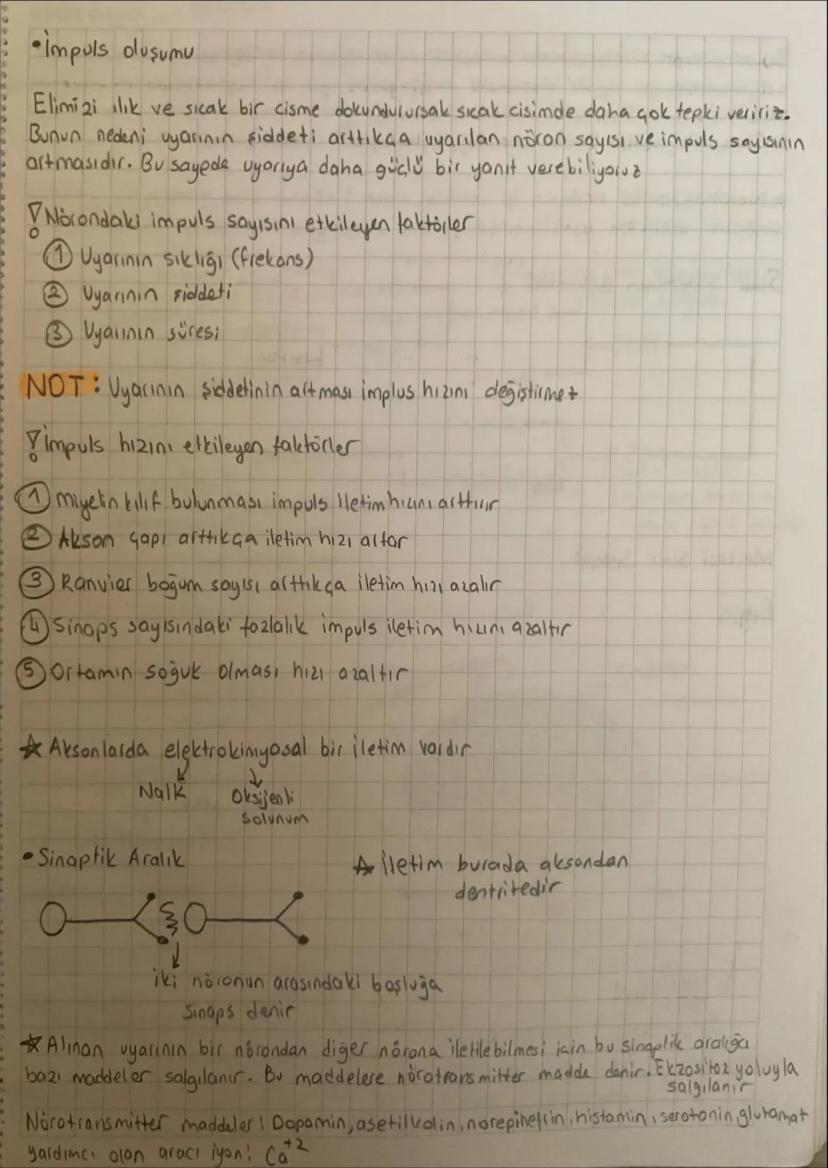 • İmpuls oluşumu
Elimizi ılık ve sıcak bir cisme dokundurursak sıcak cisimde daha çok tepki veririz.
Bunun nedeni uyarının şiddeti arttıkça uyarılan nöron sayısı ve impuls sayısının
artmasıdır. Bu sayede uyarıya daha güçlü bir yanıt verebiliyoruz
! Nörondaki impuls sayısını etkileyen faktörler
① Uyarının sıklığı (frekans)
② Uyarının şiddeti
③ Uyarının süresi
NOT: Uyarının şiddetinin artması implus hızını değiştirmez
! İmpuls hızını etkileyen faktörler
① miyelin kılıf bulunması impuls iletim hızını arttırır
② Akson çapı arttıkça iletim hızı artar
③ Ranvier boğum sayısı arttıkça iletim hızı azalır
④ Sinaps sayısındaki fazlalık impuls iletim hızını azaltır
⑤ Ortamın soğuk olması hızı azaltır
☆ Aksonlarda elektrokimyasal bir iletim vardır
↙ ↓
NaIK Oksijenli
solunum
• Sinaptik Aralık ☆ İletim burada aksondan
dentritedir
↓
iki nöronun arasındaki boşluğa
sinaps denir
☆ Alınan uyarının bir nörondan diğer nörona iletilebilmesi için bu sinaptik aralığa
bazı maddeler salgılanır. Bu maddelere nörotransmitter madde denir. Ekzositoz yoluyla
salgılanır
Nörotransmitter maddeler: Dopamin, asetilkolin, norepinefrin, histamin, serotonin glutamat
yardımcı olan aracı iyon: Ca⁺²